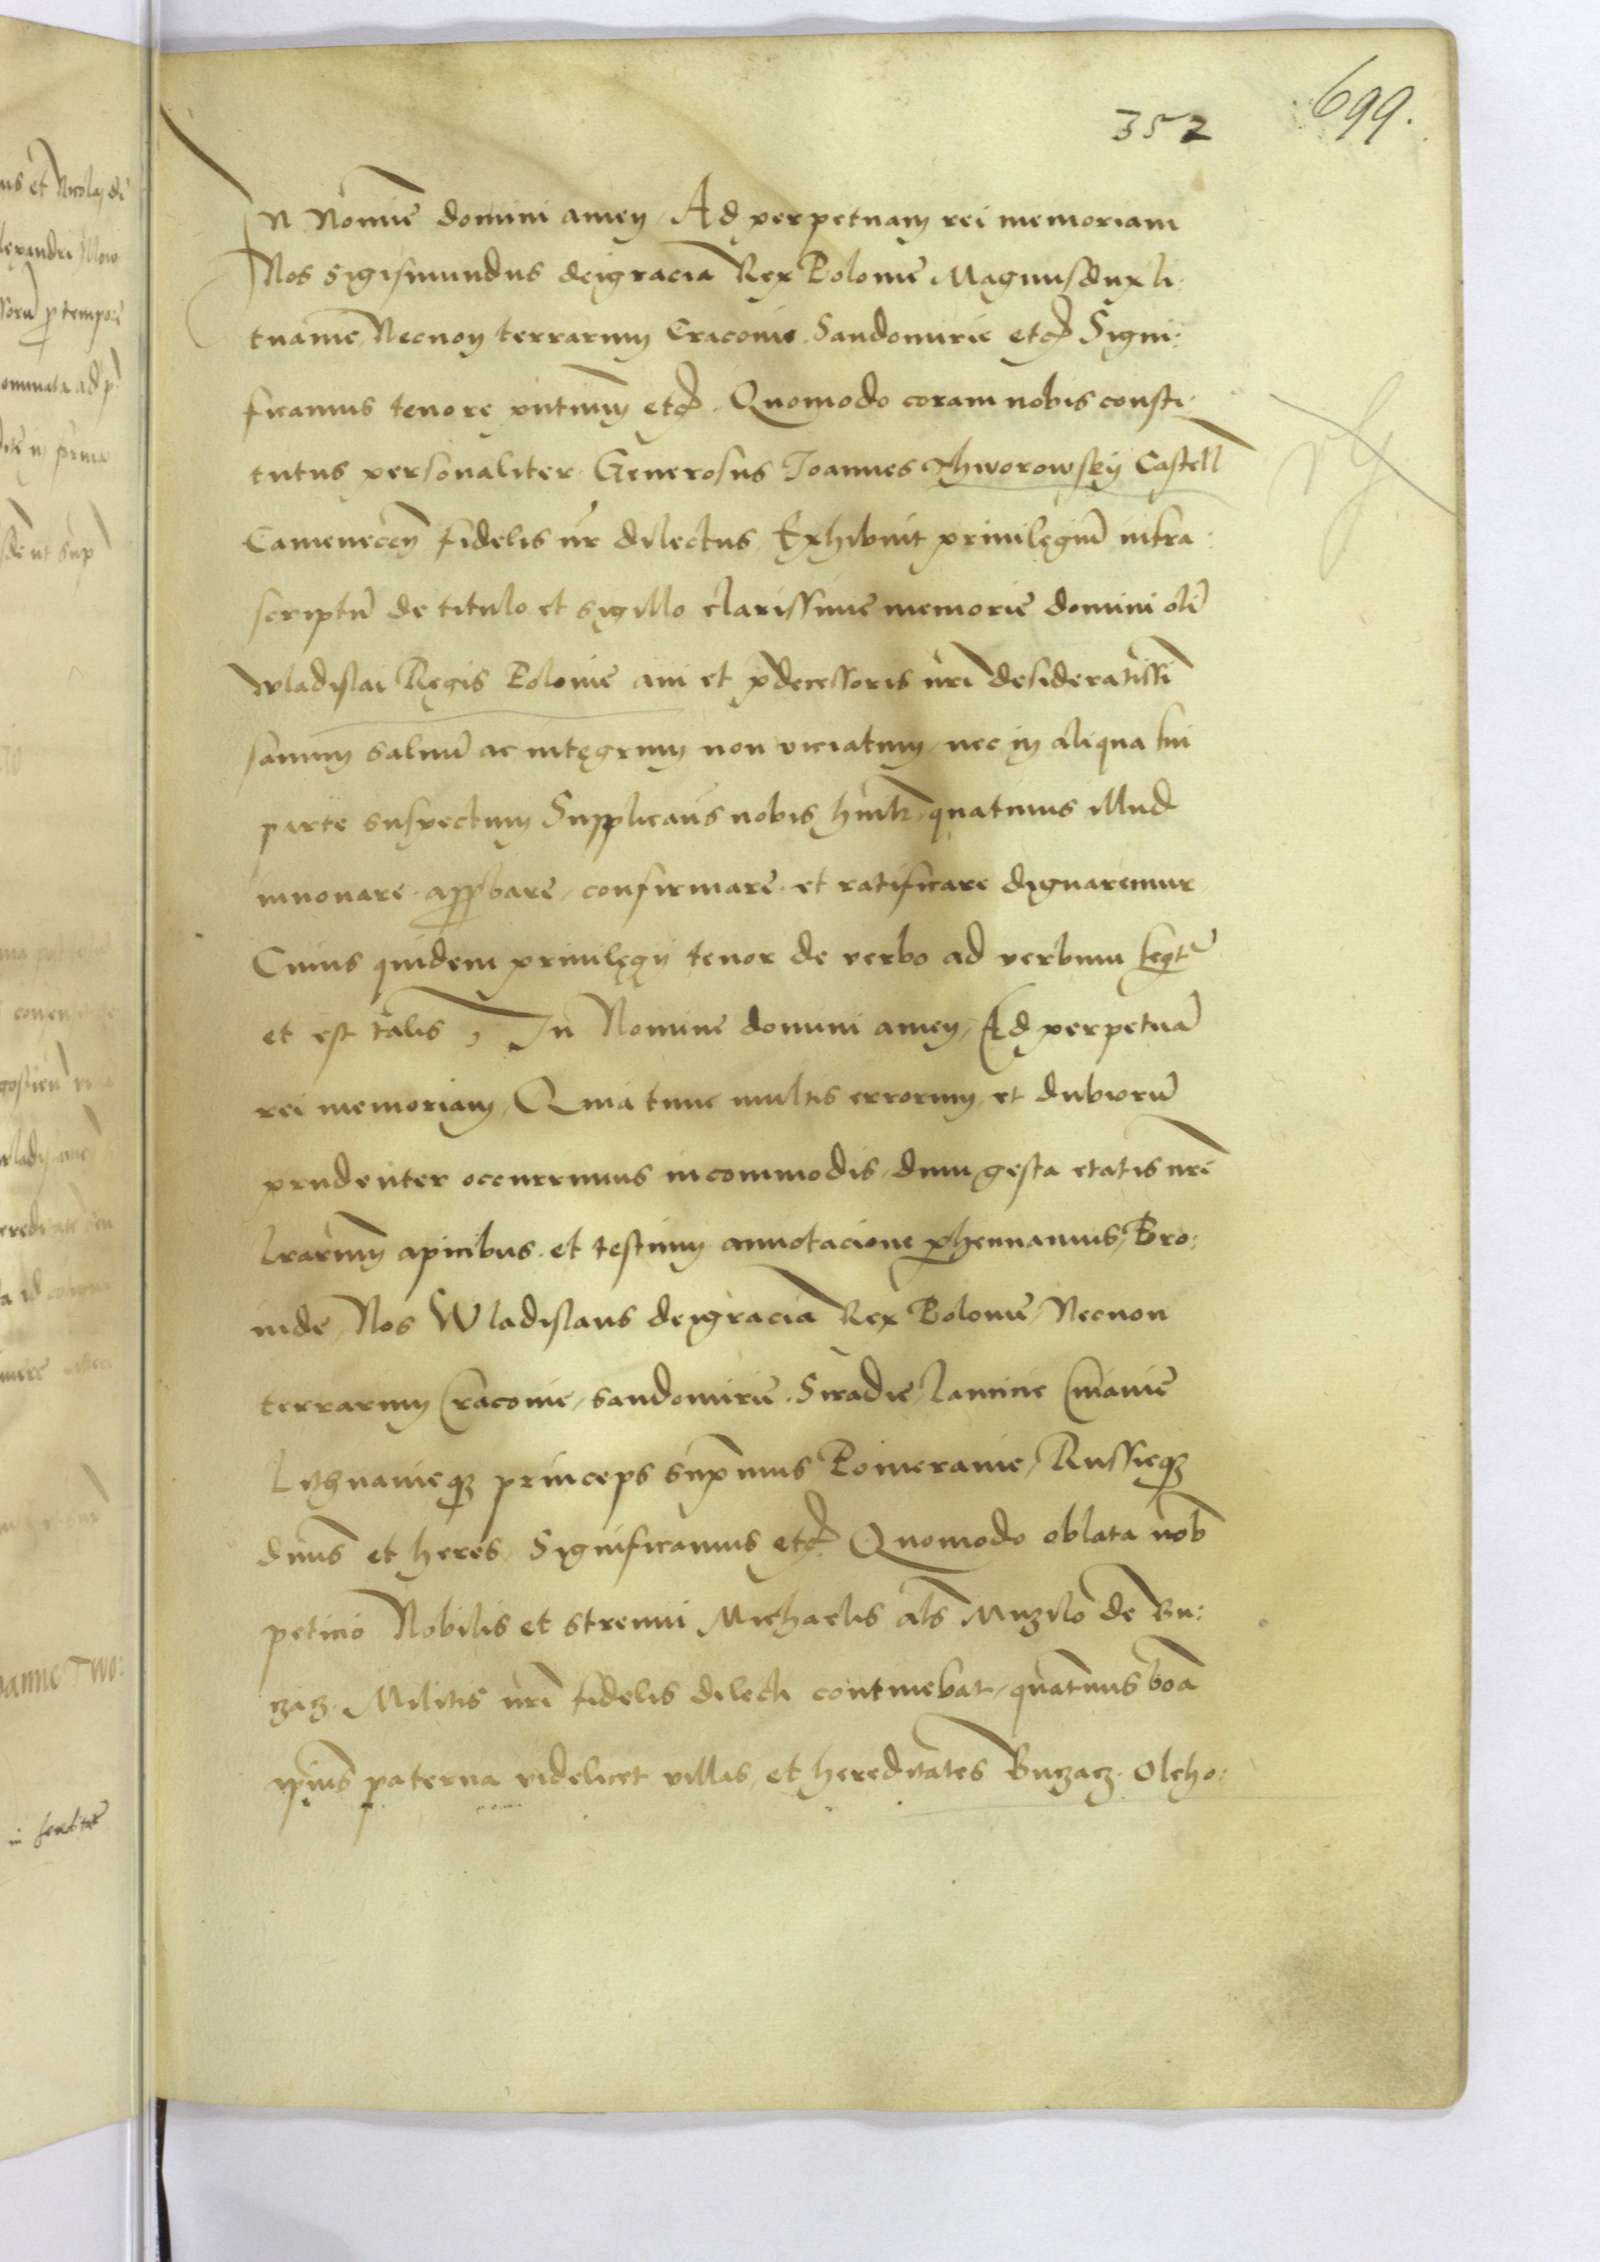 352 699.
In Nomine domini amen, Ad perpetuam rei memoriam
Nos Sigismundus deigracia Rex Polonie Magnusdux li:
tuanie Necnon terrarum Cracovie Sandomirie etc Signi:
ficamus tenore pntium etc. Quomodo coram nobis consti:
tutus personaliter Generosus Joannes Thworowsky Castell
Camenecen fidelis nr dilectus Exhibuit privilegiu infra:
scriptu de titulo et sigillo clarissime memorie domini oli
Wladislai Regis Polonie avi et pdecessoris nri desideratissi
sanum salvu ac integrum non viciatum, nec in aliqua sui
parte suspectum Supplicans nobis humilr quatinus illud
innovare approbare, confirmare et ratificare dignaremur
Cuius quidem privilegii tenor de verbo ad verbum sequitr
et est talis, In Nomine domini amen, Ad perpetua
rei memoriam, Quia tunc multis errorum et dubioru
prudenter occurrimus incommodis, dum gesta etatis nre
lrarum apicibus et testium annotacione phennamus, Pro:
inde, Nos Wladislaus deigracia Rex Polonie, Necnon
terrarum Cracovie, Sandomirie Siradie, Lancicie Cuiavie
Lithuanieq princeps supmus Pomeranie, Russieq
dnus et heres, Significamus etc Quomodo oblata nob
peticio Nobilis et strenui Michaelis als Muzilo de Bu:
czacz Militis nri fidelis dilecti continebat, quatinus bona
ipsius paterna videlicet villas, et hereditates Buczacz Olcho: